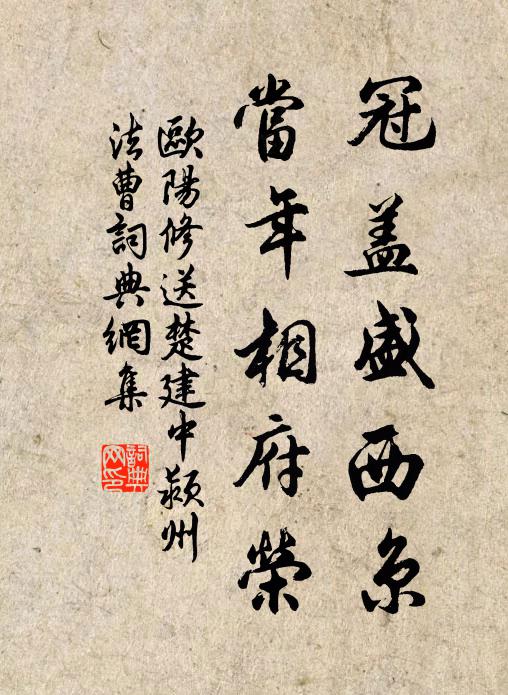 冠盖盛西京
當年相府榮
歐陽修送楚建中潁州
法曹詞典網集
詞典网印